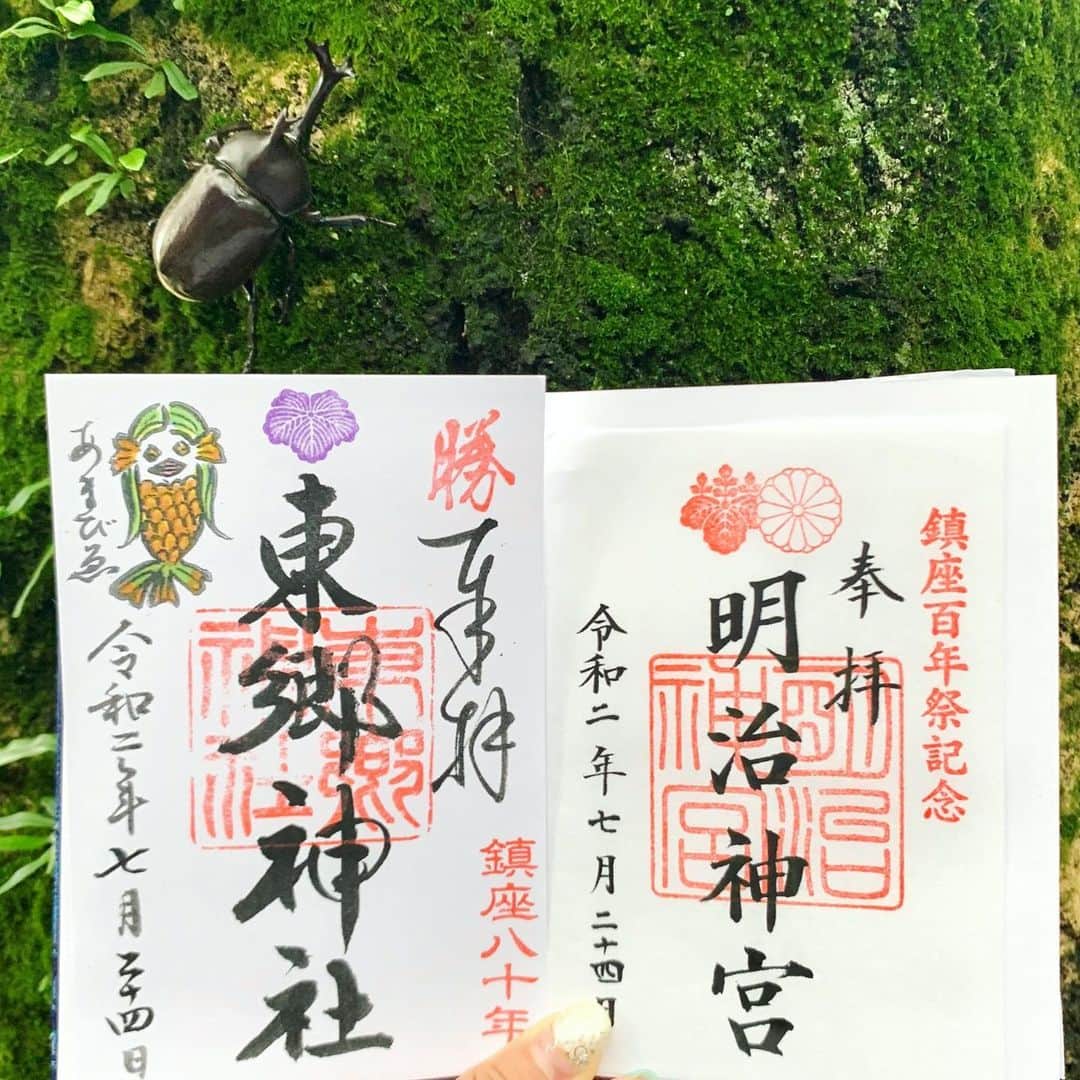 鎮座百年祭記念
奉拝
明治神宮
明治神宮
令和二年七月二十四日
勝
奉拝
鎮座八十年
東郷神社
東郷神社
あまびゑ
令和二年七月二十四日